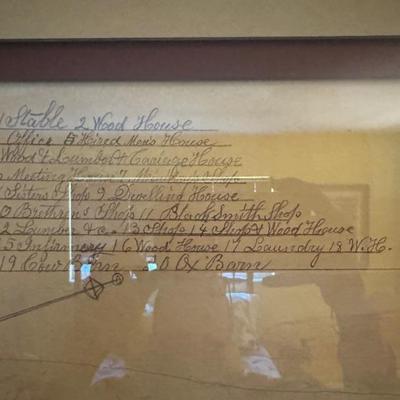 1 Stable 2 Wood House
Office 5 Hired Men's House
Wood & Lumber & Carriage House
Meeting House 7 Shop
Sisters Shop 9 Dwelling House
0 Brethren's Shop 11 Black Smith Shop
2 Lumber &c. 13 Shop 14 Shop & Wood House
5 Infirmery 16 Wood House 17 Laundry 18 W. H.
19 Cow Barn 0 Ox Barn